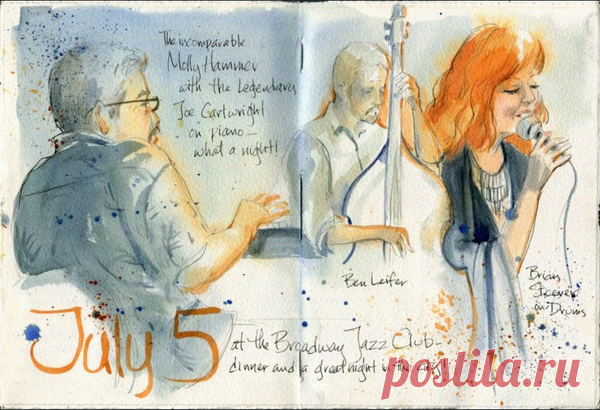 The incomparable
Molly Hammer
with the Legendary
Joe Cartwright
on piano—
what a night!
Ben Leifer
Brian
Steever
on Drums
July 5
at the Broadway Jazz Club—
dinner and a great night in the city!
postila.ru